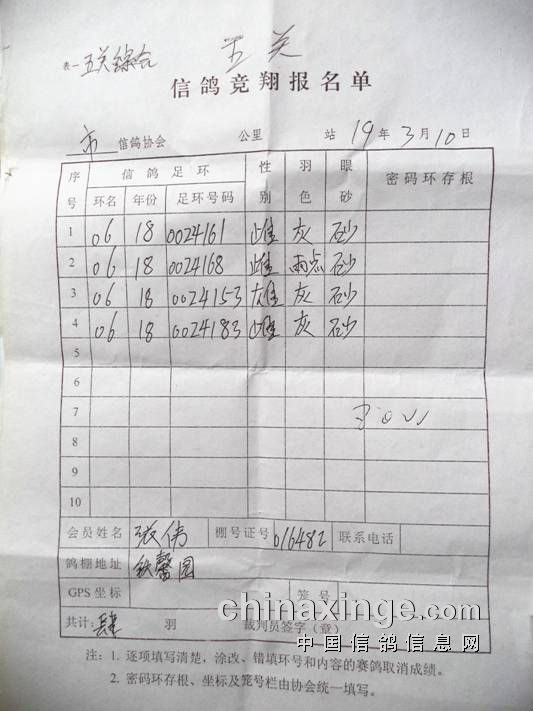 表一 五关综合 五关
信鸽竞翔报名单
市 信鸽协会 公里 站 19年3月10日
序号 信鸽足环 性别 羽色 眼砂 密码环存根
环名 年份 足环号码
1 06 18 0024161 雌 灰 砂
2 06 18 0024168 雌 雨点 砂
3 06 18 0024153 雄 灰 砂
4 06 18 0024183 雌 灰 砂
5
6
7
8
9
10
会员姓名 张伟 棚号证号 016482 联系电话
鸽棚地址 馨园
GPS坐标 笼号
共计: 肆 羽 裁判员签字(章)
chinaxinge.com
中国信鸽信息网
注:1. 逐项填写清楚,涂改、错填环号和内容的赛鸽取消成绩。
2. 密码环存根、坐标及笼号栏由协会统一填写。